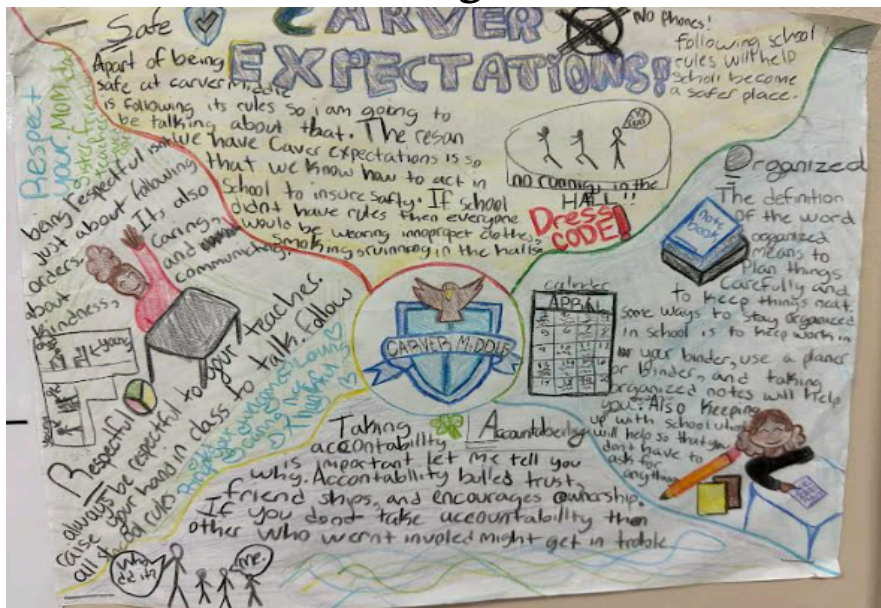 CARVER
EXPECTATIONS!
Safe
Apart of being
safe at carver Middle
is following its rules so i am going to
be talking about that. The resan
we have Caver expectations is so
that we know how to act in
School to insure safty. If school
didnt have rules then everyone
would be wearing innopropet clothes,
smoking, or running in the halls.
No phones!
following school
rules will help
School become
a safer place.
no running in the
HALL!!
Dress
CODE!
Organized
The definition
of the word
organized
means to
Plan things
Carefully and
to keep things neat.
some ways to stay organized
in school is to keep work in
your binder, use a planer
or binder, and taking
organized notes will help
you. Also Keeping
up with school
will help so that you
don't have to
ask for
anything
note
book
calender
APRIL
CARVER MIDDLE
Respect
your MOM
being respectful isnt
just about following
orders. It's also
about caring,
kindness, and
Respectful
always be respectful to your teacher.
raise your hand in class to talk. Follow
all school rules
Accountability
Taking
accountability
is important let me tell you
why. Accountability builed trust,
friend ships, and encourages ownership.
If you dont take accountability then
other who wernt involed might get in troble
Who
did it?
me.